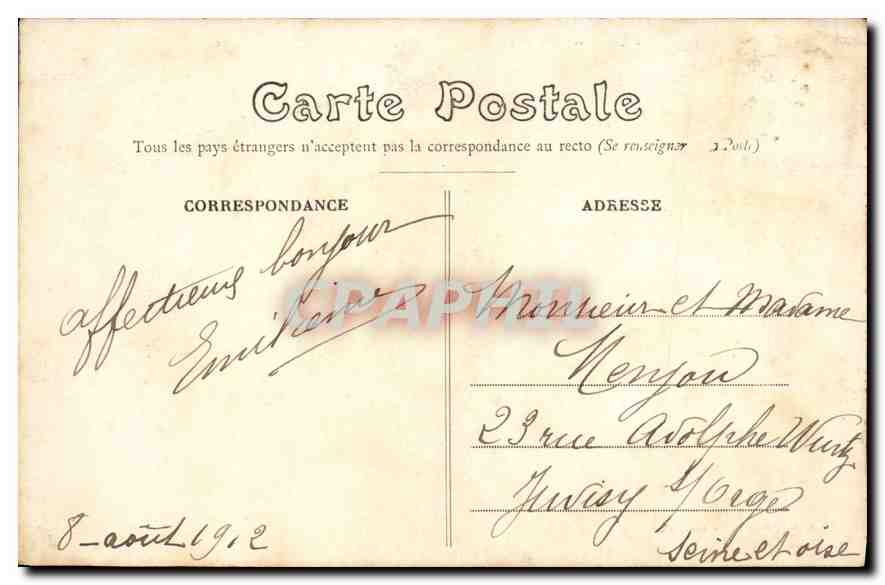 Carte Postale
Tous les pays étrangers n'acceptent pas la correspondance au recto (Se renseigner à Poste)
CORRESPONDANCE
affectueux bonjour
8 - août 1912
ADRESSE
Monsieur et Madame
Menjou
23 rue Adolphe Wurtz
Juvisy s/ Orge
Seine et oise
CPAPHIL